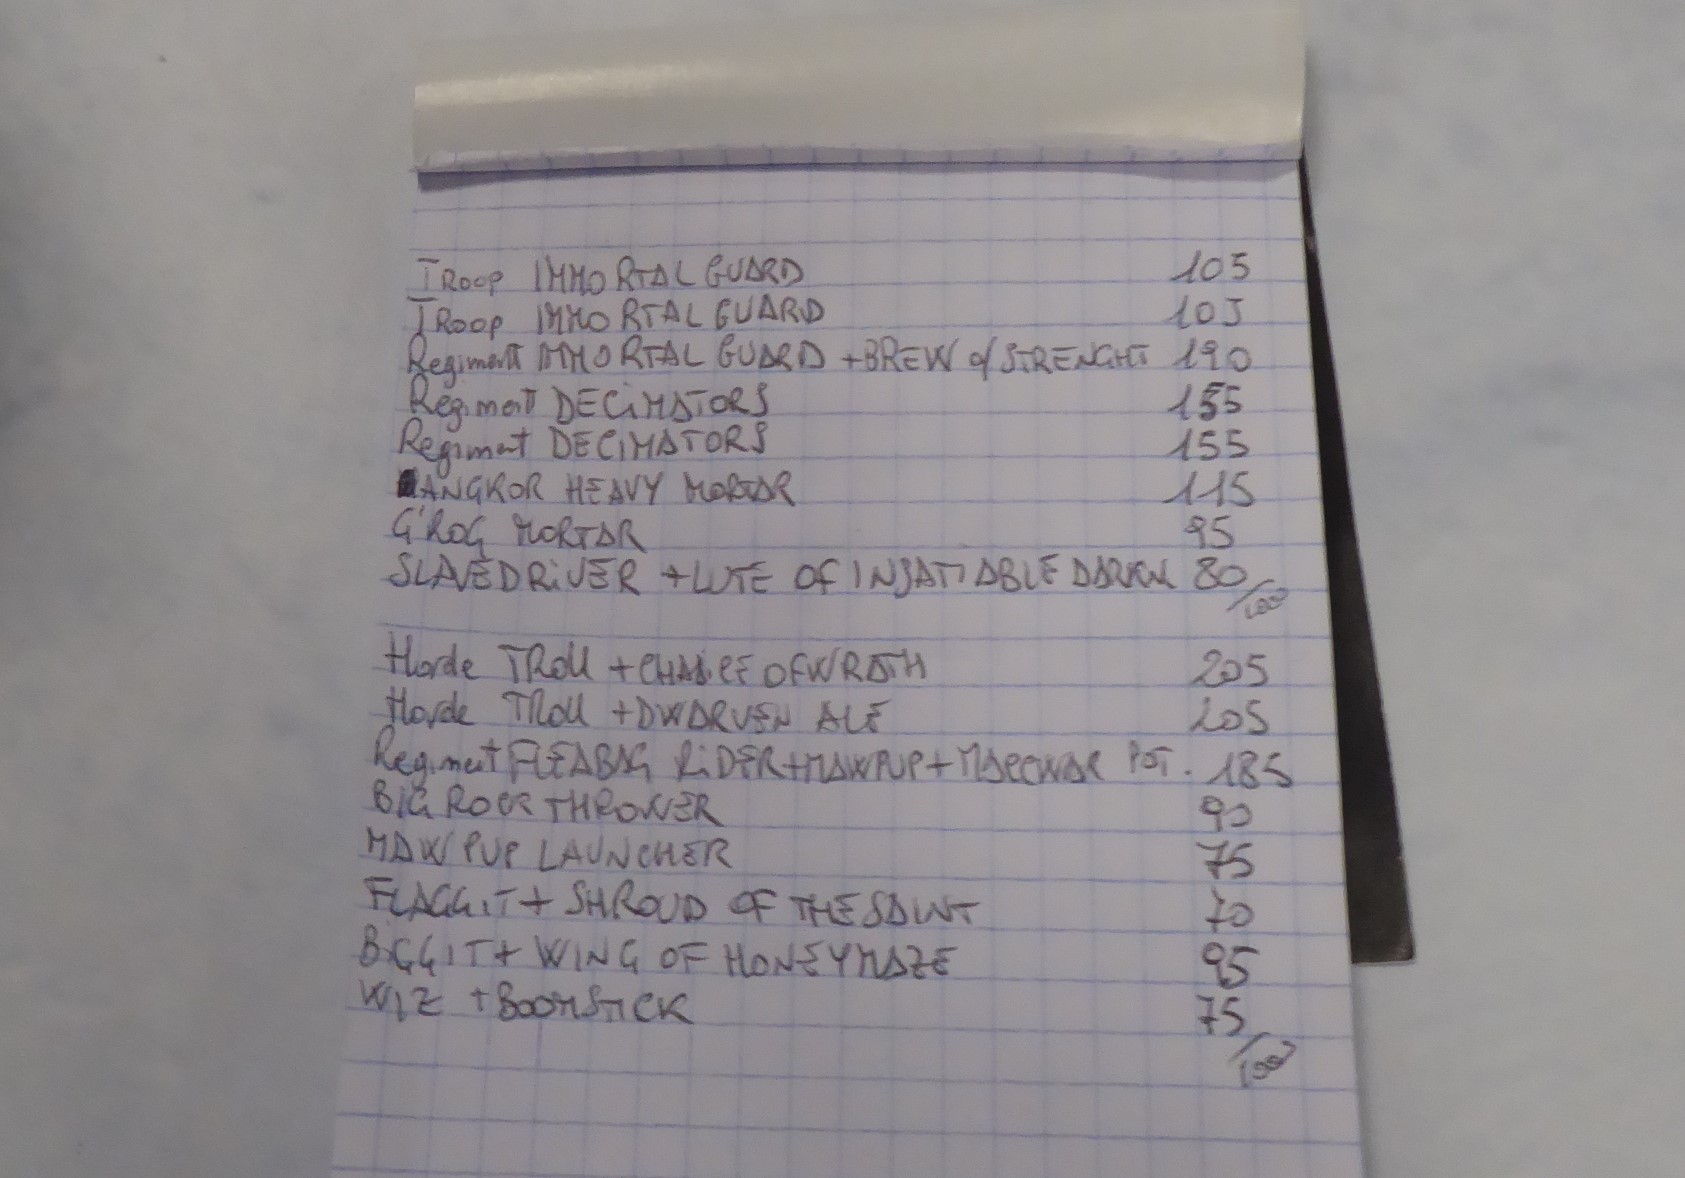 TROOP IMMORTAL GUARD 105
TROOP IMMORTAL GUARD 105
Regiment IMMORTAL GUARD +BREW of STRENGHT 190
Regiment DECIMATORS 155
Regiment DECIMATORS 155
ANGKOR HEAVY MORTAR 115
G'ROG MORTAR 95
SLAVEDRIVER + LUTE OF INSATIABLE DARKN 80
/1000
Horde TROLL + CHALICE OF WRATH 205
Horde TROLL + DWARVEN ALE 205
Regiment FLEABAG RIDER + MAWPUP + POT. 185
BIG ROCK THROWER 90
MAWPUP LAUNCHER 75
FLAGGIT + SHROUD OF THE SAINT 70
BIGGIT + WING OF HONEYMAZE 95
WIZ + BOOMSTICK 75
/1000